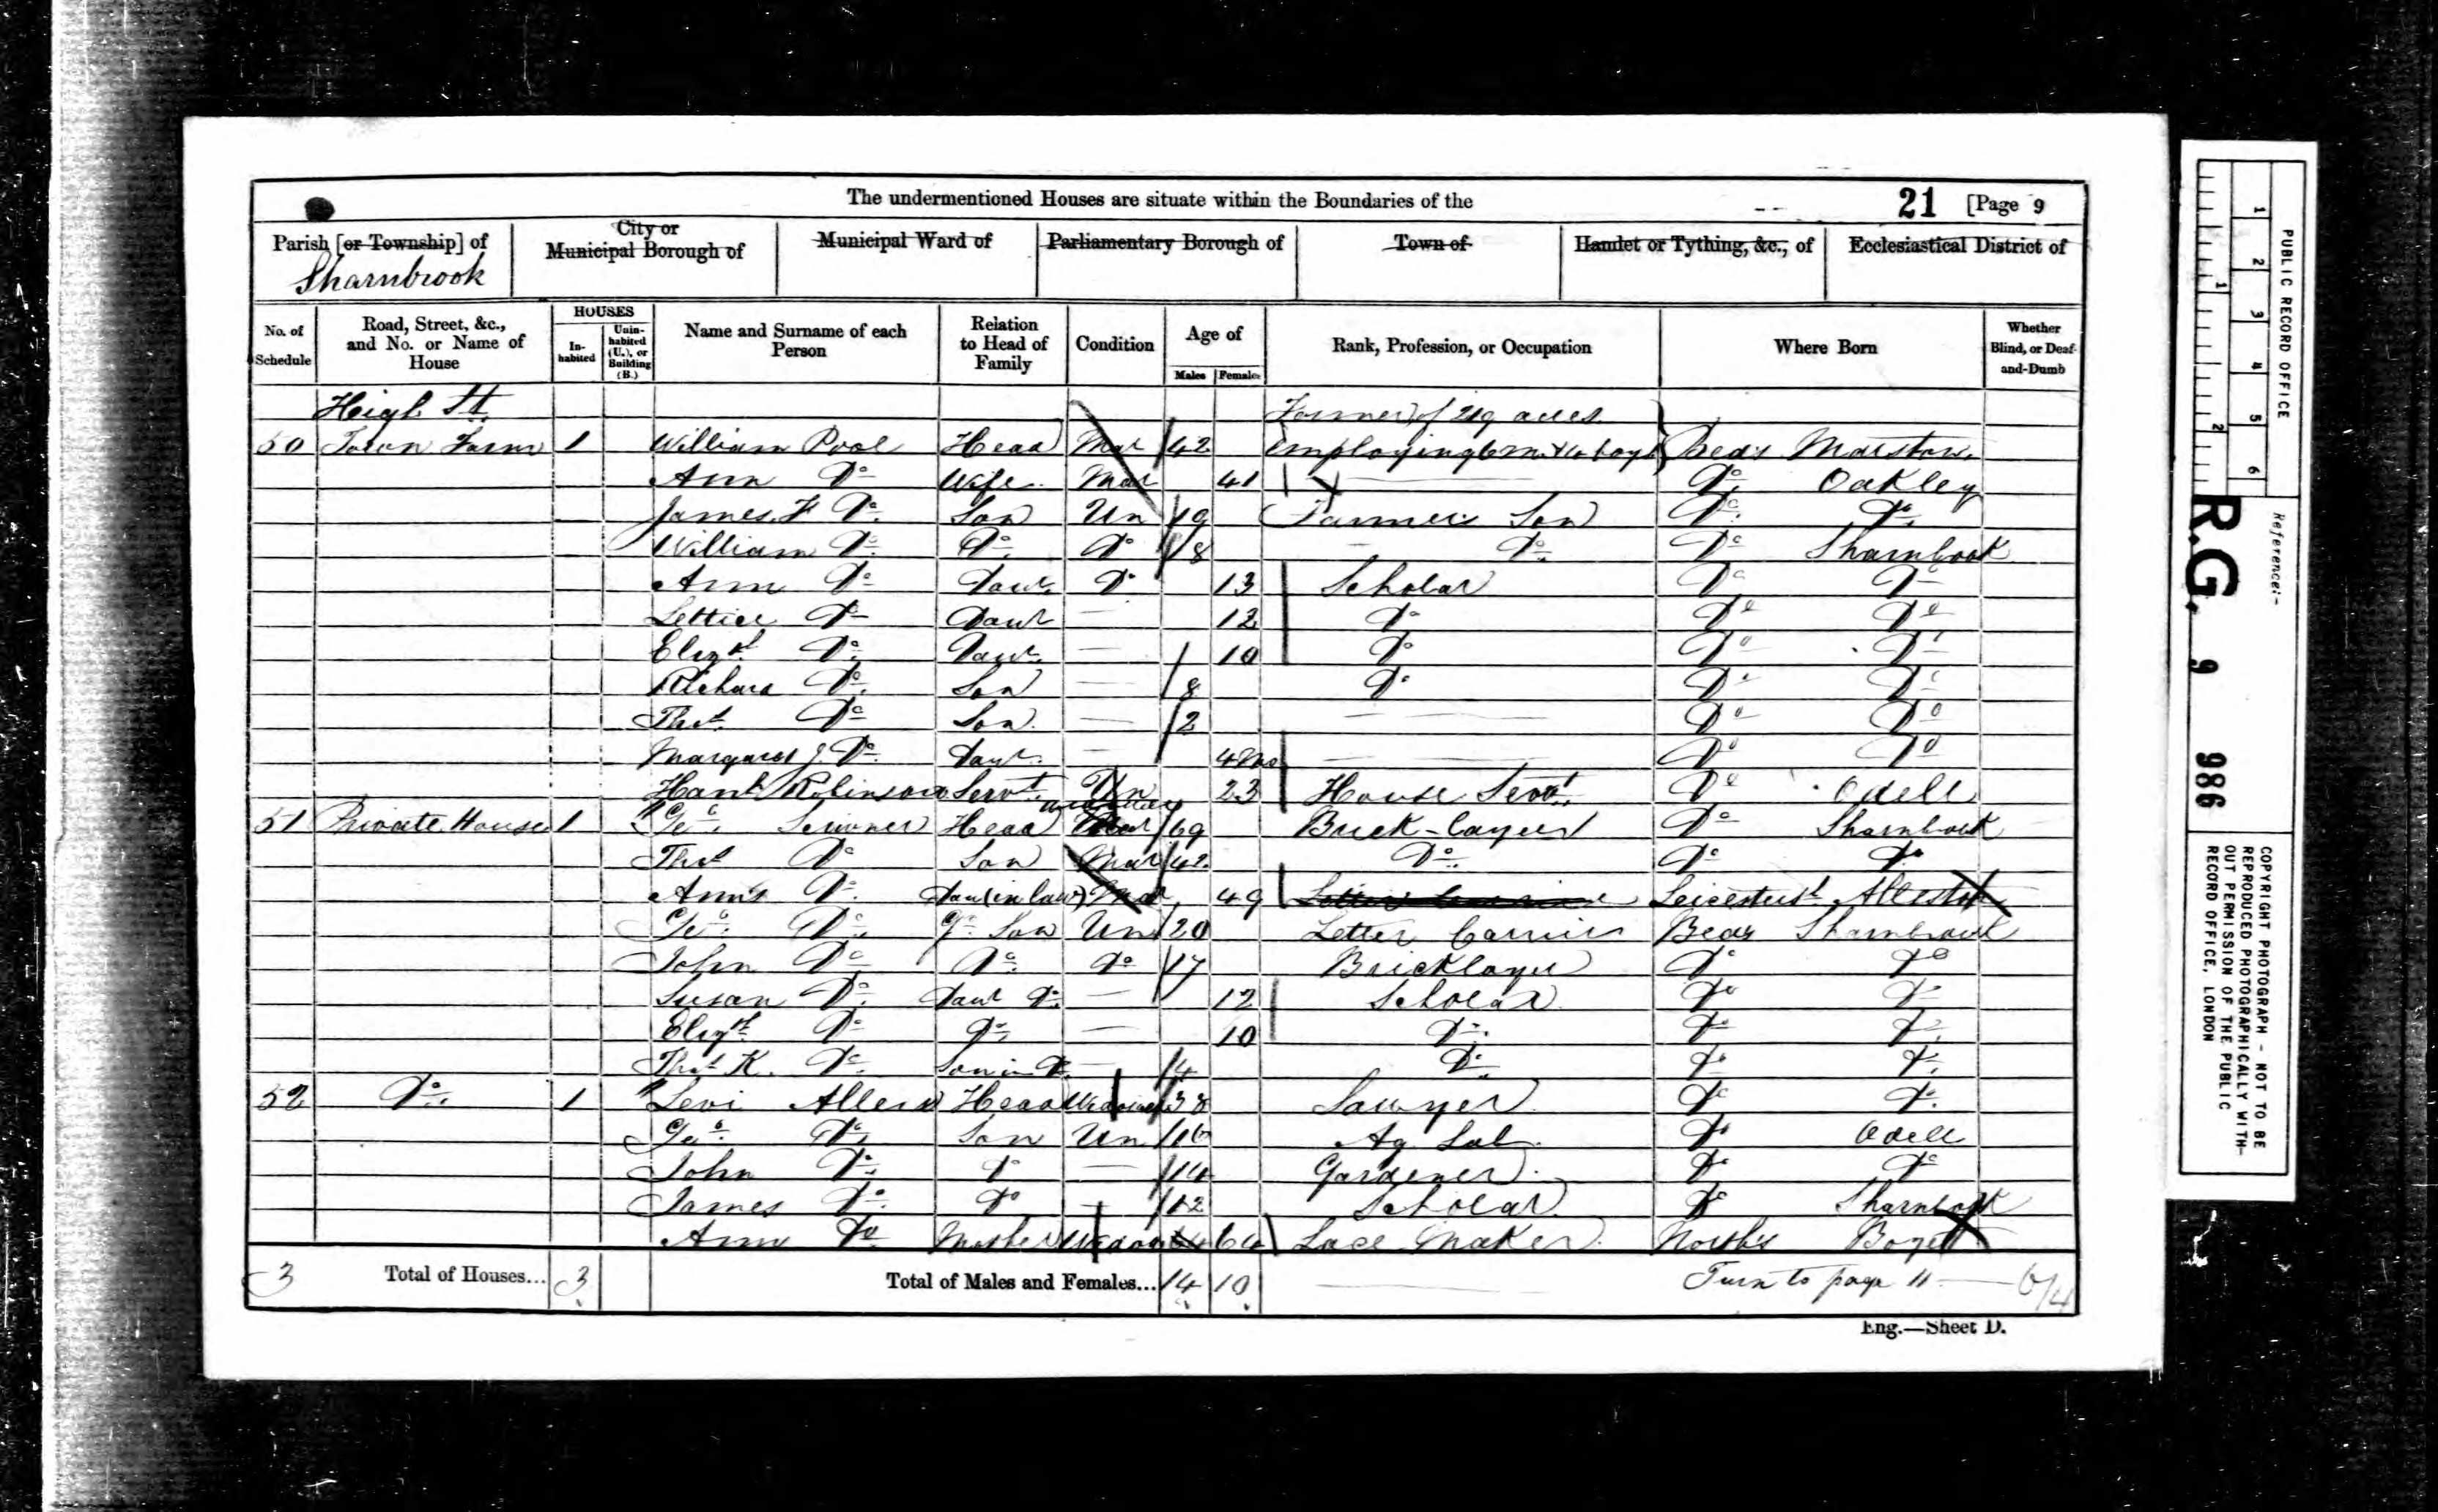 The undermentioned Houses are situate within the Boundaries of the 21 [Page 9
Parish [or Township] of Sharnbrook
City or Municipal Borough of
Municipal Ward of
Parliamentary Borough of
Town of
Hamlet or Tything, &c., of
Ecclesiastical District of
No. of Schedule
Road, Street, &c., and No. or Name of House
HOUSES
In-habited
Unin-habited (U.), or Building (B.)
Name and Surname of each Person
Relation to Head of Family
Condition
Age of
Males
Females
Rank, Profession, or Occupation
Where Born
Whether Blind, or Deaf-and-Dumb
High St. Farmer of 219 acres
50 Town Farm 1 William Pool Head Mar 42 employing 6 m & 4 boys Beds Marston
Ann Do Wife Mar 41 Do Oakley
James F Do Son Un 19 Farmer's Son Do Do
William Do Do Do 18 Do Do Sharnbrook
Ann Do Daur Do 13 Scholar Do Do
Lettice Do Daur 12 Do Do Do
Elizth Do Daur 10 Do Do Do
Richard Do Son 8 Do Do Do
Thos Do Son 2 Do Do
Margaret J. Do Daur 4 Mo Do Do
Hanh Robinson Servt Un 23 House Servt Do Odell
51 Private House 1 Geo. Head 69 Brick-layer Do Sharnbrook
Thos Do Son Mar 42 Do Do Do
Anns Do Dau (in law) Mar 49 Letter Leicestersh
Geo. Do Gr. Son Un 20 Letter Carrier Beds Sharnbrook
John Do Do Do 17 Bricklayer Do Do
Susan Do Daur Do 12 Scholar Do Do
Elizth Do Do 10 Do Do Do
Thos K. Do Son in Do 4 Do Do Do
52 Do 1 Levi Allen Head Widower 38 Sawyer Do Do
Geo. Do Son Un 16 Ag Lab Do Odell
John Do Do 14 Gardener Do Do
James Do Do 12 Scholar Do Sharnbrook
Ann Do Mother Widow 64 Lace Maker Norths
3 Total of Houses... 3 Total of Males and Females... 14 10 Turn to page 11 6/4
Eng.—Sheet D.
PUBLIC RECORD OFFICE
1 2 3 4 5 6
1 2
Reference:-
R.G. 9 986
COPYRIGHT PHOTOGRAPH - NOT TO BE
REPRODUCED PHOTOGRAPHICALLY WITH-
OUT PERMISSION OF THE PUBLIC
RECORD OFFICE, LONDON